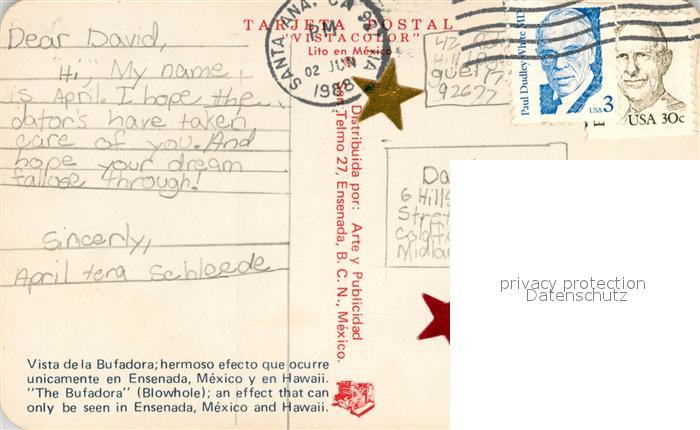 TARJETA POSTAL
"VISTACOLOR"
Lito en México
Dear David,
"Hi" My name
is April. I hope the
dator's have taken
care of you. And
hope your dream
fallose through!
Sincerly,
April tera Schleede
SANTA ANA, CA
PM
02 JUN
1988
Paul Dudley White MD
USA 3
USA 30c
92677
Da
6 Hills
Stre
Midla
Distribuida por: Arte y Publicidad
Telmo 27, Ensenada, B. C. N., México.
privacy protection
Datenschutz
Vista de la Bufadora; hermoso efecto que ocurre
unicamente en Ensenada, México y en Hawaii.
"The Bufadora" (Blowhole); an effect that can
only be seen in Ensenada, México and Hawaii.